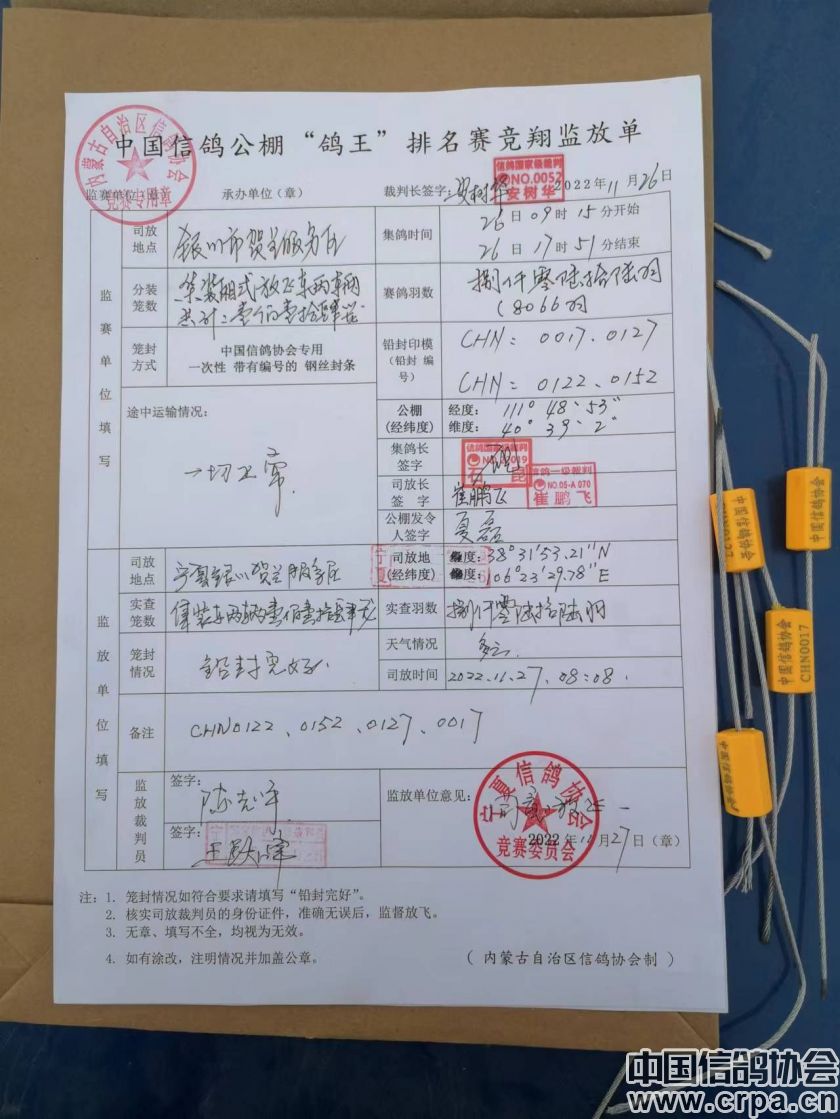 中国信鸽公棚“鸽王”排名赛竞翔监放单
内蒙古自治区信鸽协会
竞赛专用章
监赛单位（章） 承办单位（章） 裁判长签字：安树华 2022年11月26日
信鸽国家级裁判
NO.0052
安树华
监赛单位填写
司放地点 银川市贺兰服务区
集鸽时间 26日09时15分开始
26日17时51分结束
分装笼数 集装箱式放飞车两车两
赛鸽羽数 捌仟零陆拾陆羽
(8066羽
笼封方式 中国信鸽协会专用
一次性 带有编号的 钢丝封条
铅封印模（铅封 编号） CHN：0017、0127
CHN：0122、0152
途中运输情况：
一切正常.
公棚（经纬度） 经度：111°48′53″
维度：40°39′2″
集鸽长签字
司放长签字 崔鹏飞
信鸽一级裁判
NO.05-A 070
崔鹏飞
公棚发令人签字 夏磊
监放单位填写
司放地点 宁夏银川贺兰服务区
司放地（经纬度） 38°31′53.21″N
106°23′29.78″E
实查笼数
实查羽数 捌仟零陆拾陆羽
笼封情况 铅封完好.
天气情况 多云.
司放时间 2022.11.27,08:08.
备注 CHN0122、0152、0127、0017
监放裁判员
签字：陈志军
签字：
监放单位意见：
宁夏信鸽协会
竞赛委员会
2022年11月27日（章）
注：1. 笼封情况如符合要求请填写“铅封完好”。
2. 核实司放裁判员的身份证件，准确无误后，监督放飞。
3. 无章、填写不全，均视为无效。
4. 如有涂改，注明情况并加盖公章。
（内蒙古自治区信鸽协会制）
中国信鸽协会
中国信鸽协会
中国信鸽协会
CHN0017
中国信鸽协会
中国信鸽协会
www.crpa.cn